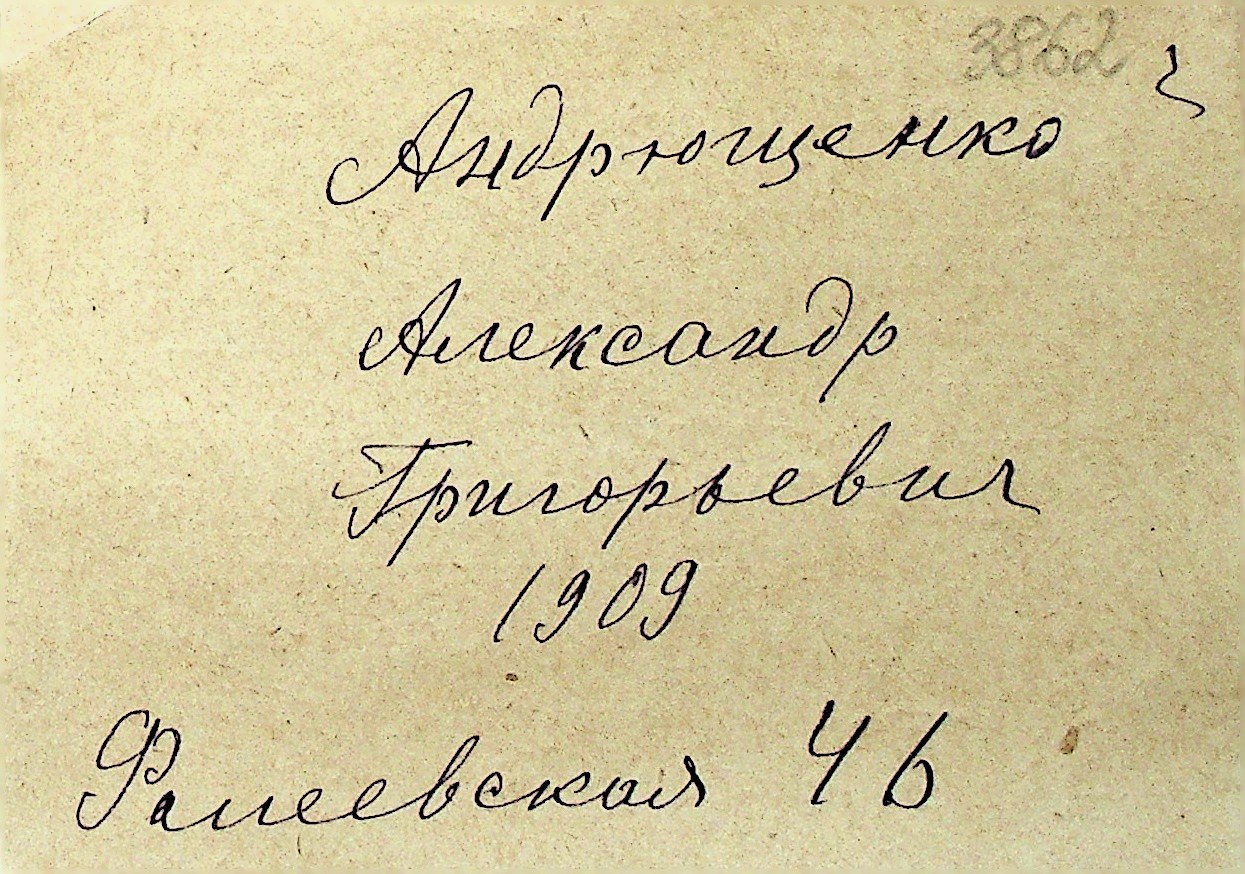 3862
Андрющенко
Александр
Григорьевич
1909
46